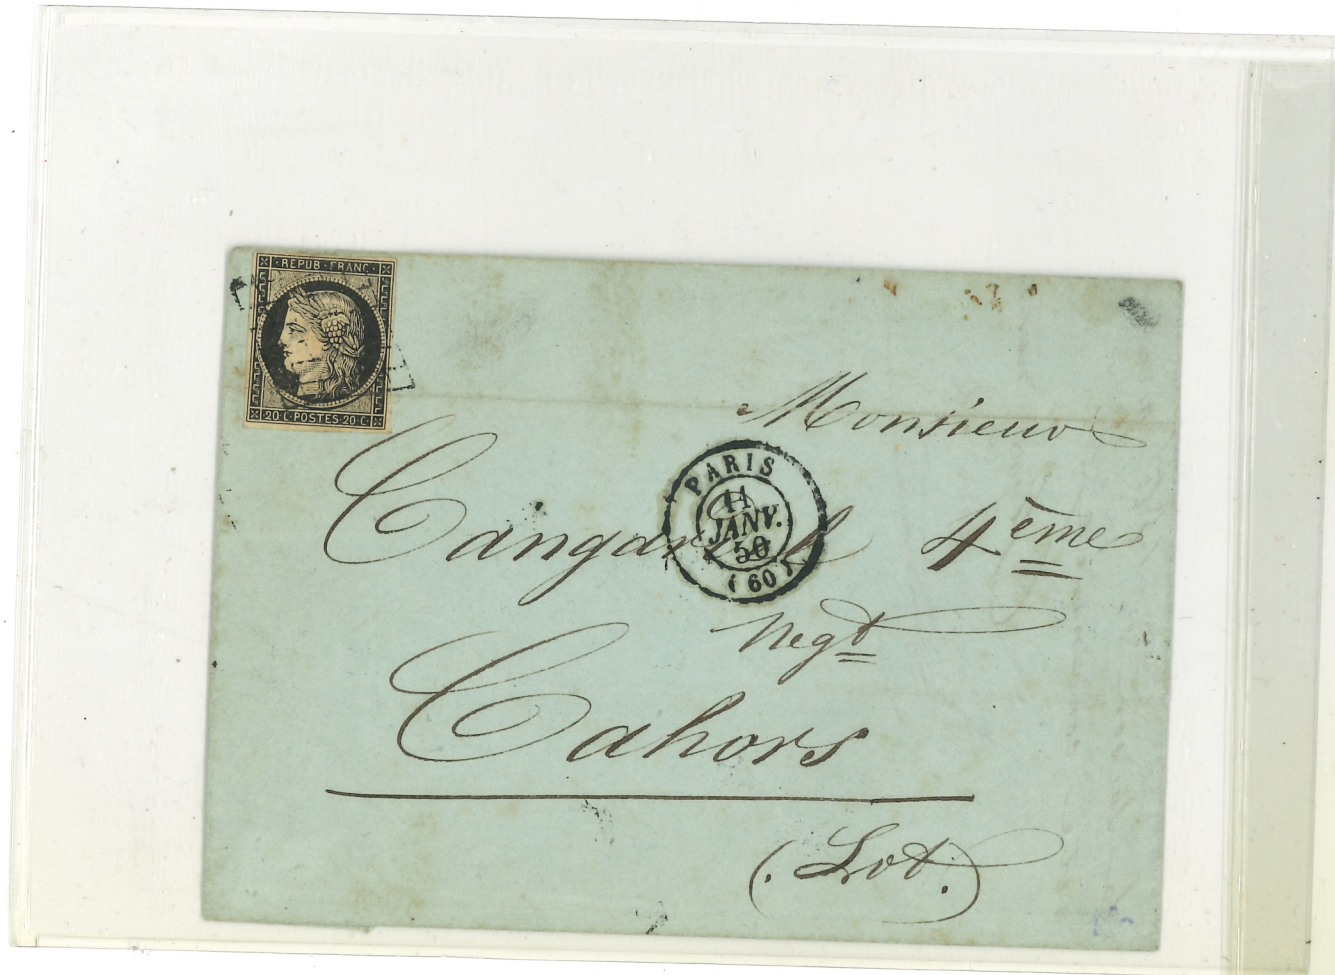 REPUB·FRANC·
20·C·POSTES·20·C·
Monsieur
PARIS
11
JANV.
50
(60)
4ème
Negt
Cahors
(Lot.)